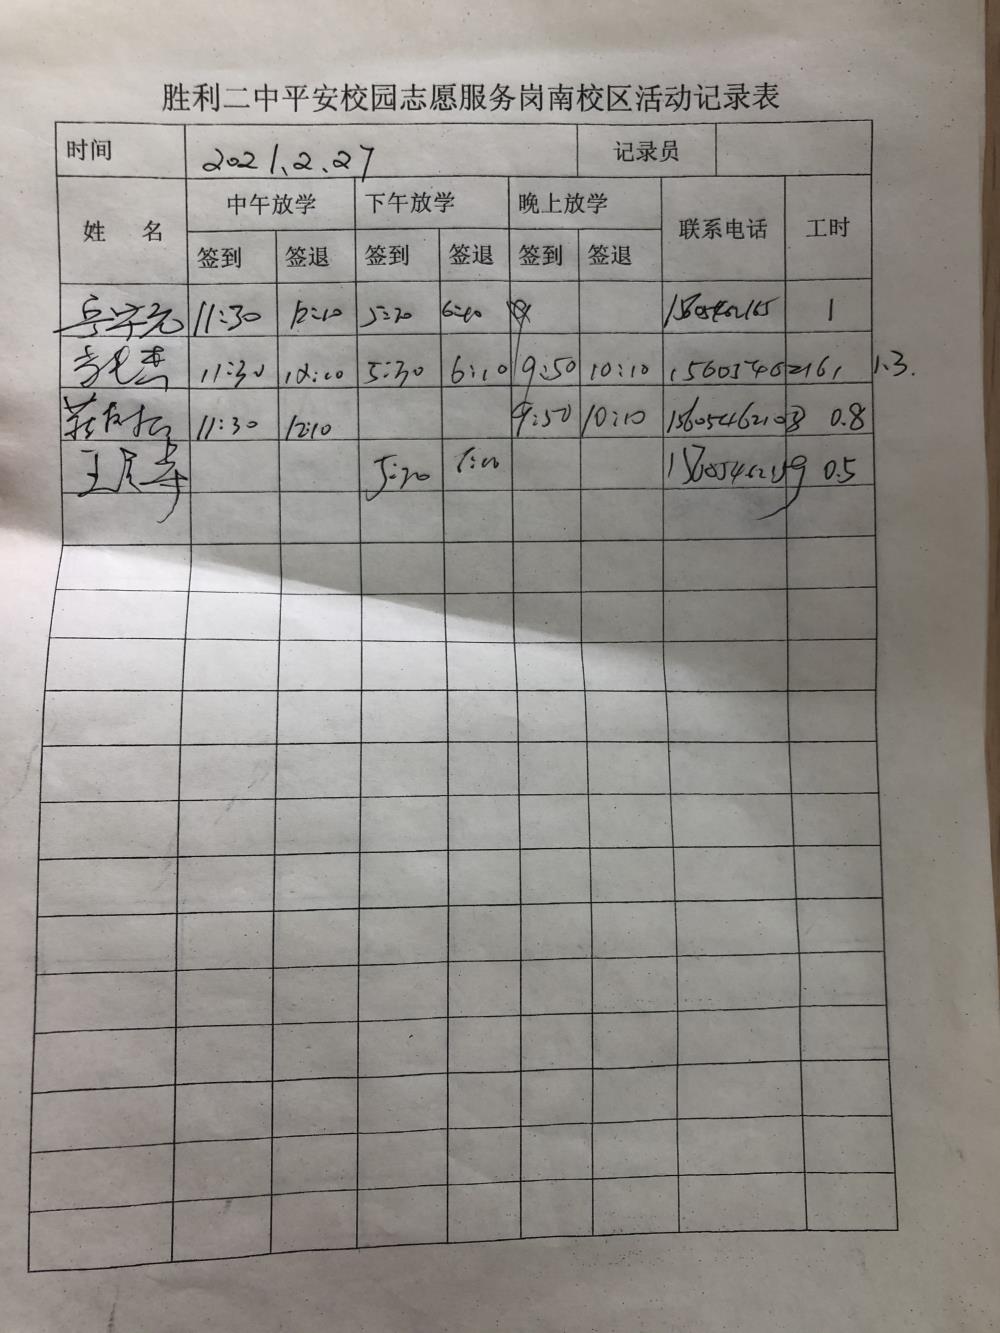 胜利二中平安校园志愿服务岗南校区活动记录表
时间 2021.2.27 记录员
姓 名 中午放学 下午放学 晚上放学 联系电话 工时
签到 签退 签到 签退 签到 签退
11:30 12:10 5:30 1
11:30 12:10 5:30 6:10 9:50 10:10 15605462161 1.3.
11:30 12:10 9:50 10:10 0.8
5:30 0.5